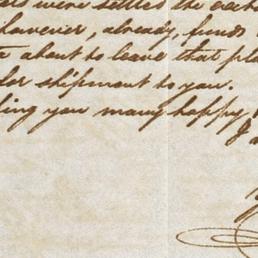 were settled the
however, already, funds
about to leave that
shipment to you.
you many happy,